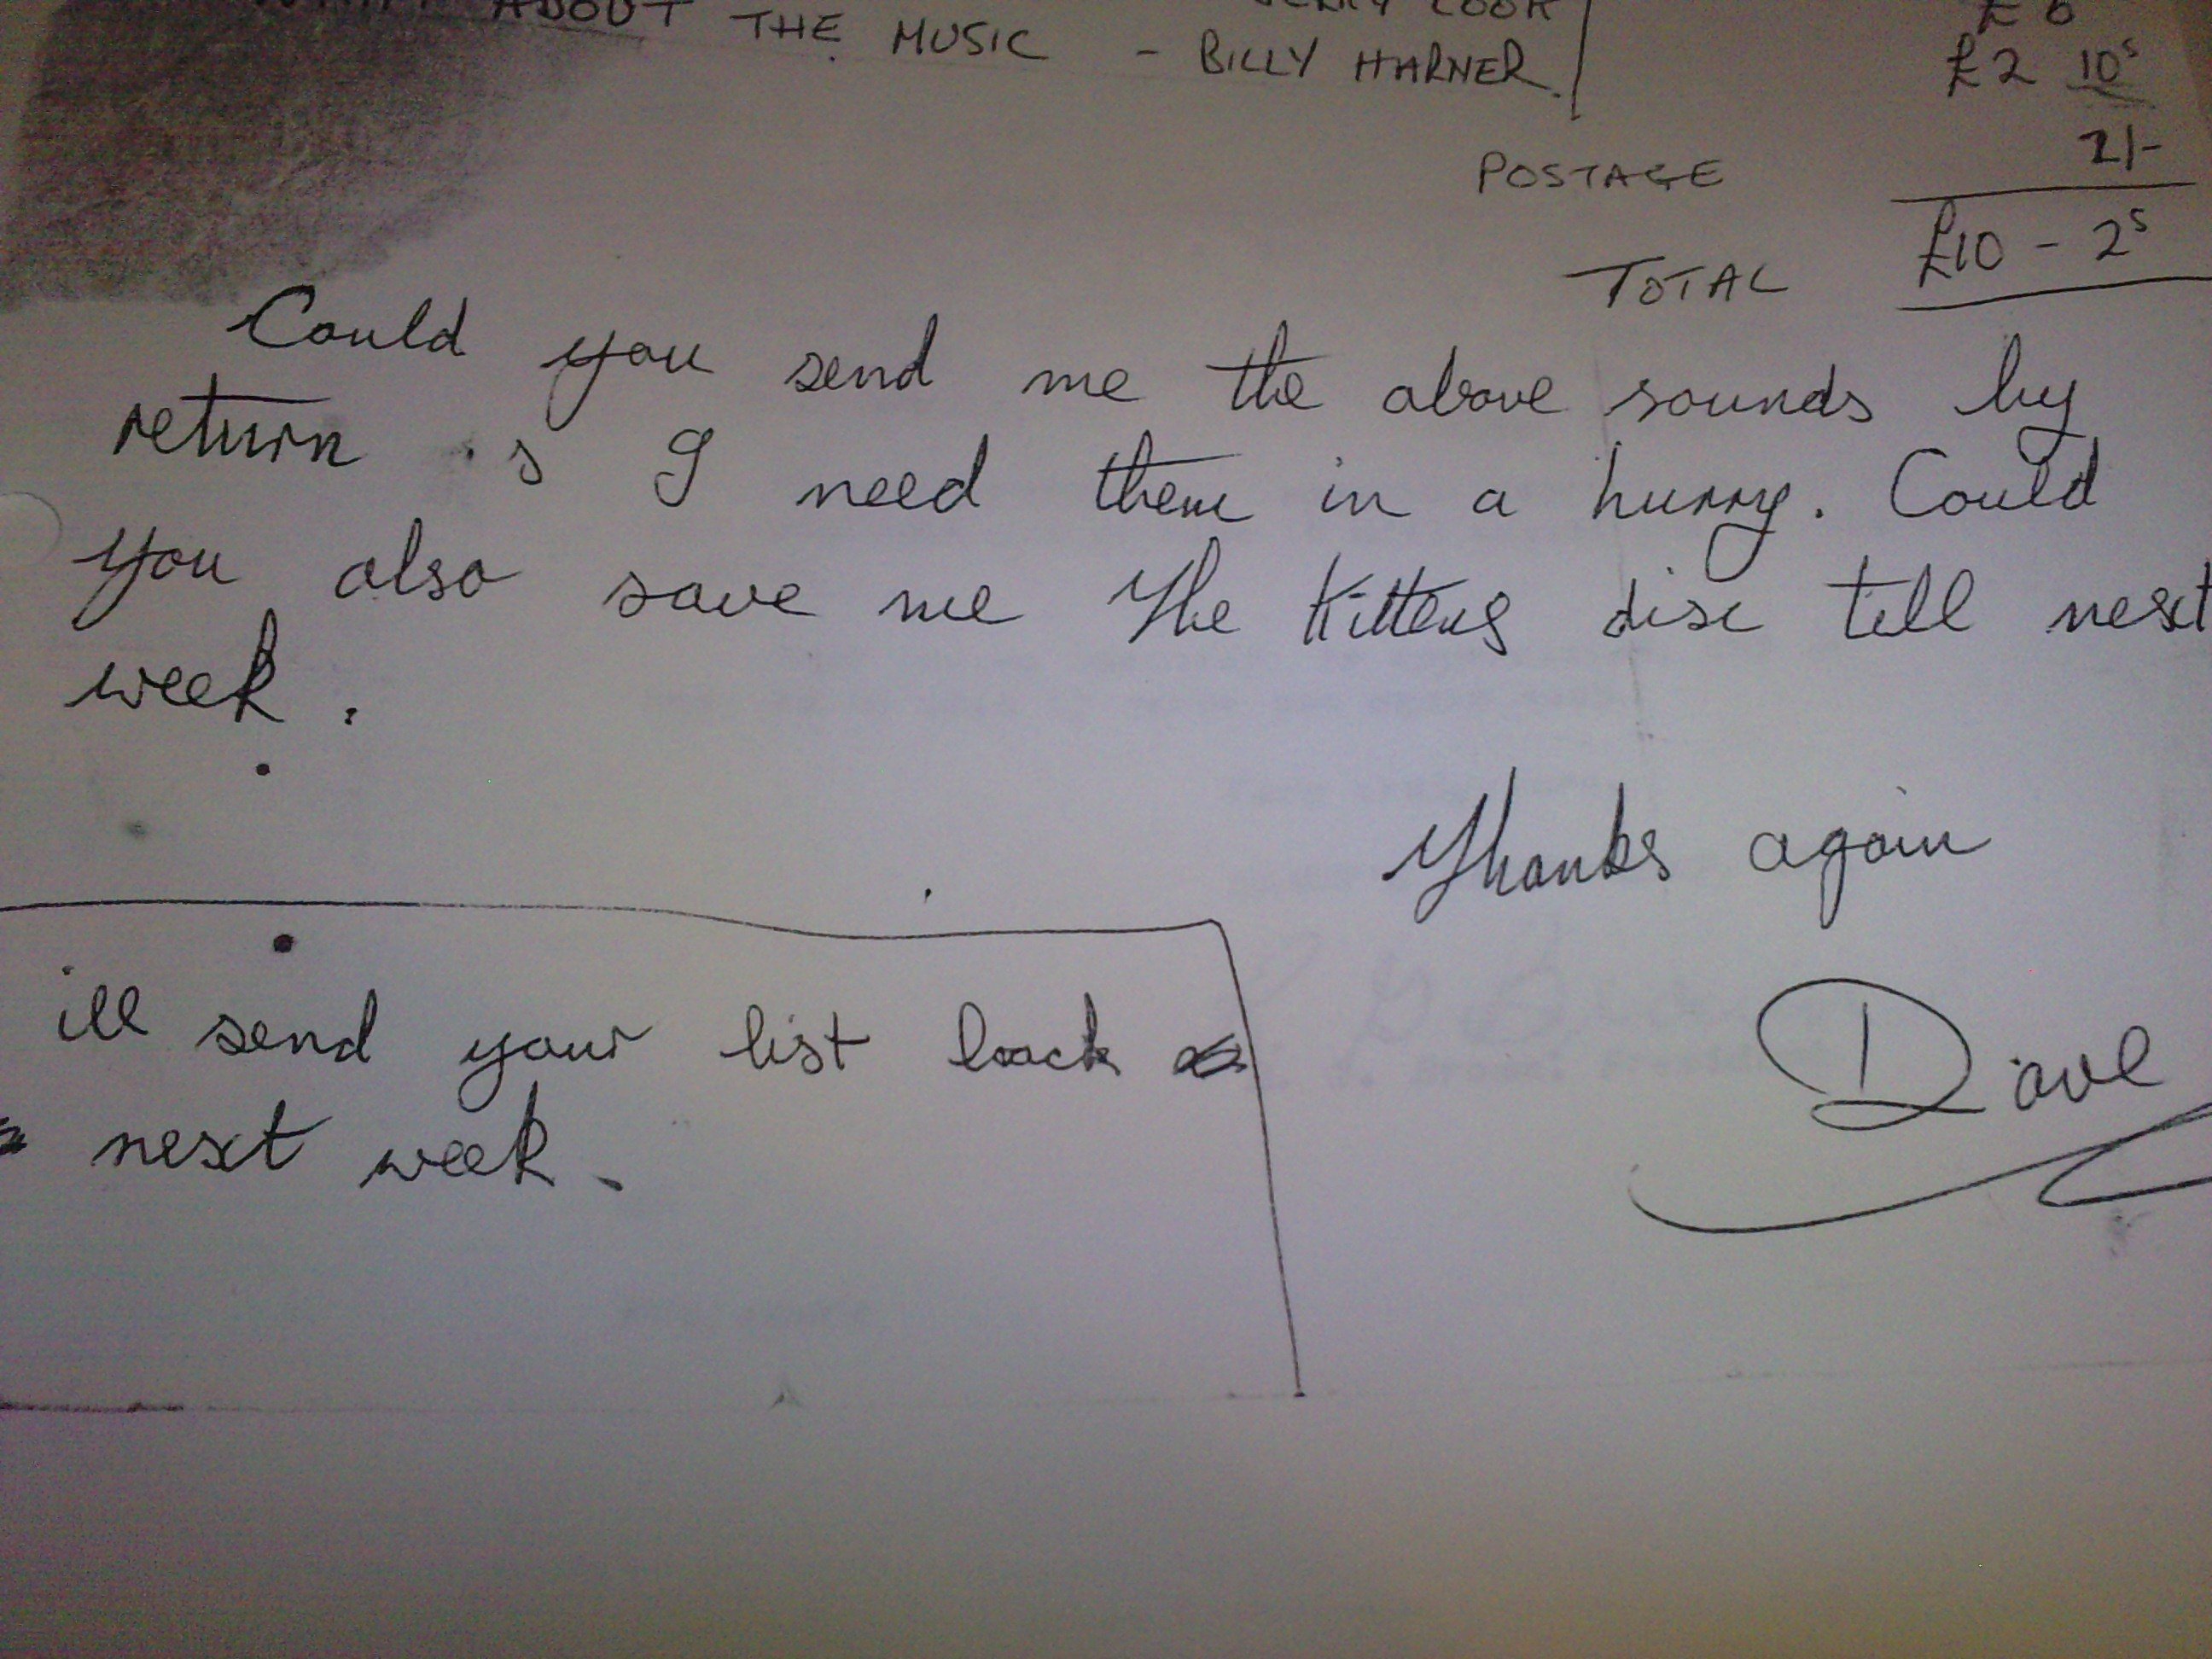 ABOUT THE MUSIC - BILLY HARNER.
JERRY COOK
£6
£2 10s
POSTAGE 2/-
TOTAL £10 - 2s
Could you send me the above sounds by
return s I need them in a hurry. Could
you also save me The Kittens disc till next
week.
Thanks again
Dave
ill send your list back
next week.